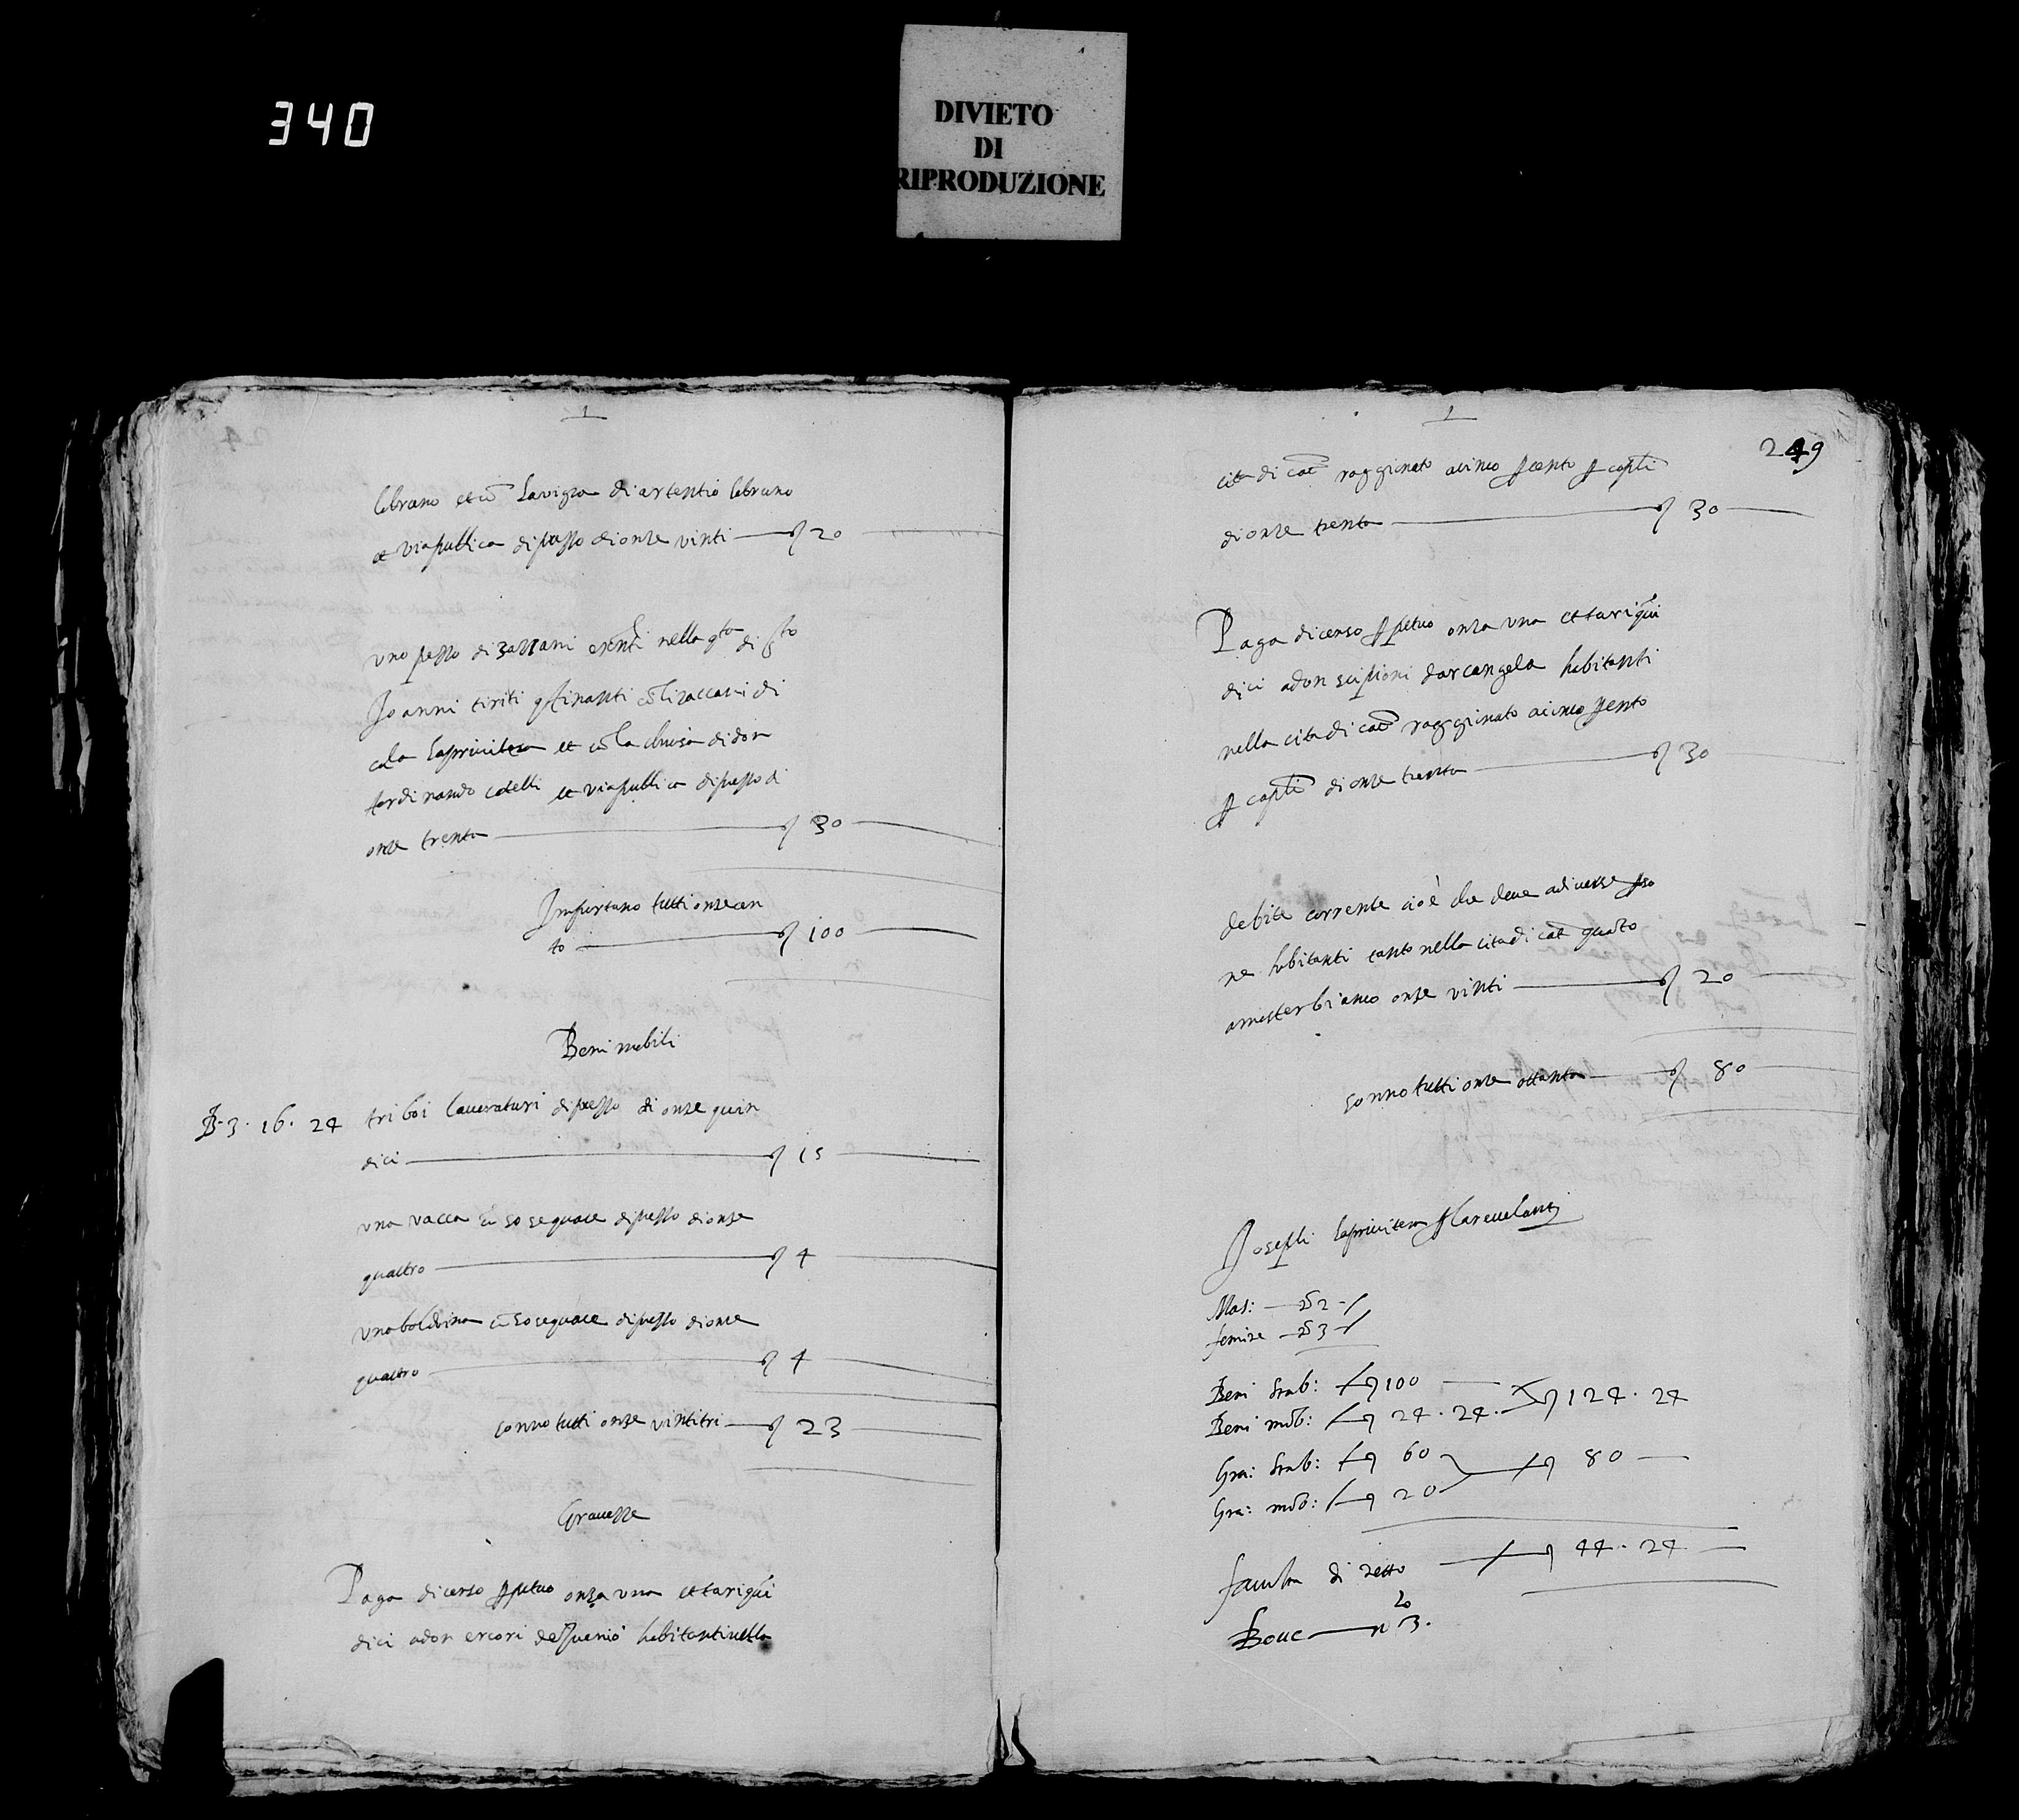 340
DIVIETO
DI
RIPRODUZIONE
lebruno et cū la vigna di artentio lebruno
et via publica di prezzo di onze vinti ƺ 20
uno pezzo di zaccani existenti nella q.ta di s.to
Joanni tiriti confinanti cō li zaccani di
cola laprivitera et cū la chiusa di don
ferdinando catelli et via publica di prezzo di
onze trenta ƺ 30
Importano tutti onze cen
to ƺ 100
Beni mobili
B. 3. 16. 24 tri boi lavoraturi di prezzo di onze quin
dici ƺ 15
una vacca cū so sequace di prezzo di onze
quattro ƺ 4
una cū so sequace di prezzo di onze
quattro ƺ 4
sonno tutti onze vintitri ƺ 23
Gravezze
Paga di censo ꝑpetuo onza una et tari quī
dici a don habitanti nella
249
cita di cat.a raggionato a cinco ꝑ cento ꝑ capitli
di onze trenta ƺ 30
Paga di censo ꝑpetuo onza una et tari quī
dici a don scipioni darcangela habitanti
nella cita di cat.a raggionato a cinco ꝑ cento
ꝑ capitli di onze trenta ƺ 30
debite corrente cioè che deve a diverse ꝑso
ne habitanti tanto nella cita di cat.a quāto
a misterbianco onze vinti ƺ 20
sonno tutti onze ottanta ƺ 80
Joseph laprivitera
Mas: n.o 2
femine n.o 3
Beni stab: ƺ 100
Beni mob: ƺ 24. 24. ƺ 124. 24
Gra: stab: ƺ 60
ƺ 80
Gra: mob: ƺ 20
faculta di netto ƺ 44. 24
Bove n.o 3.